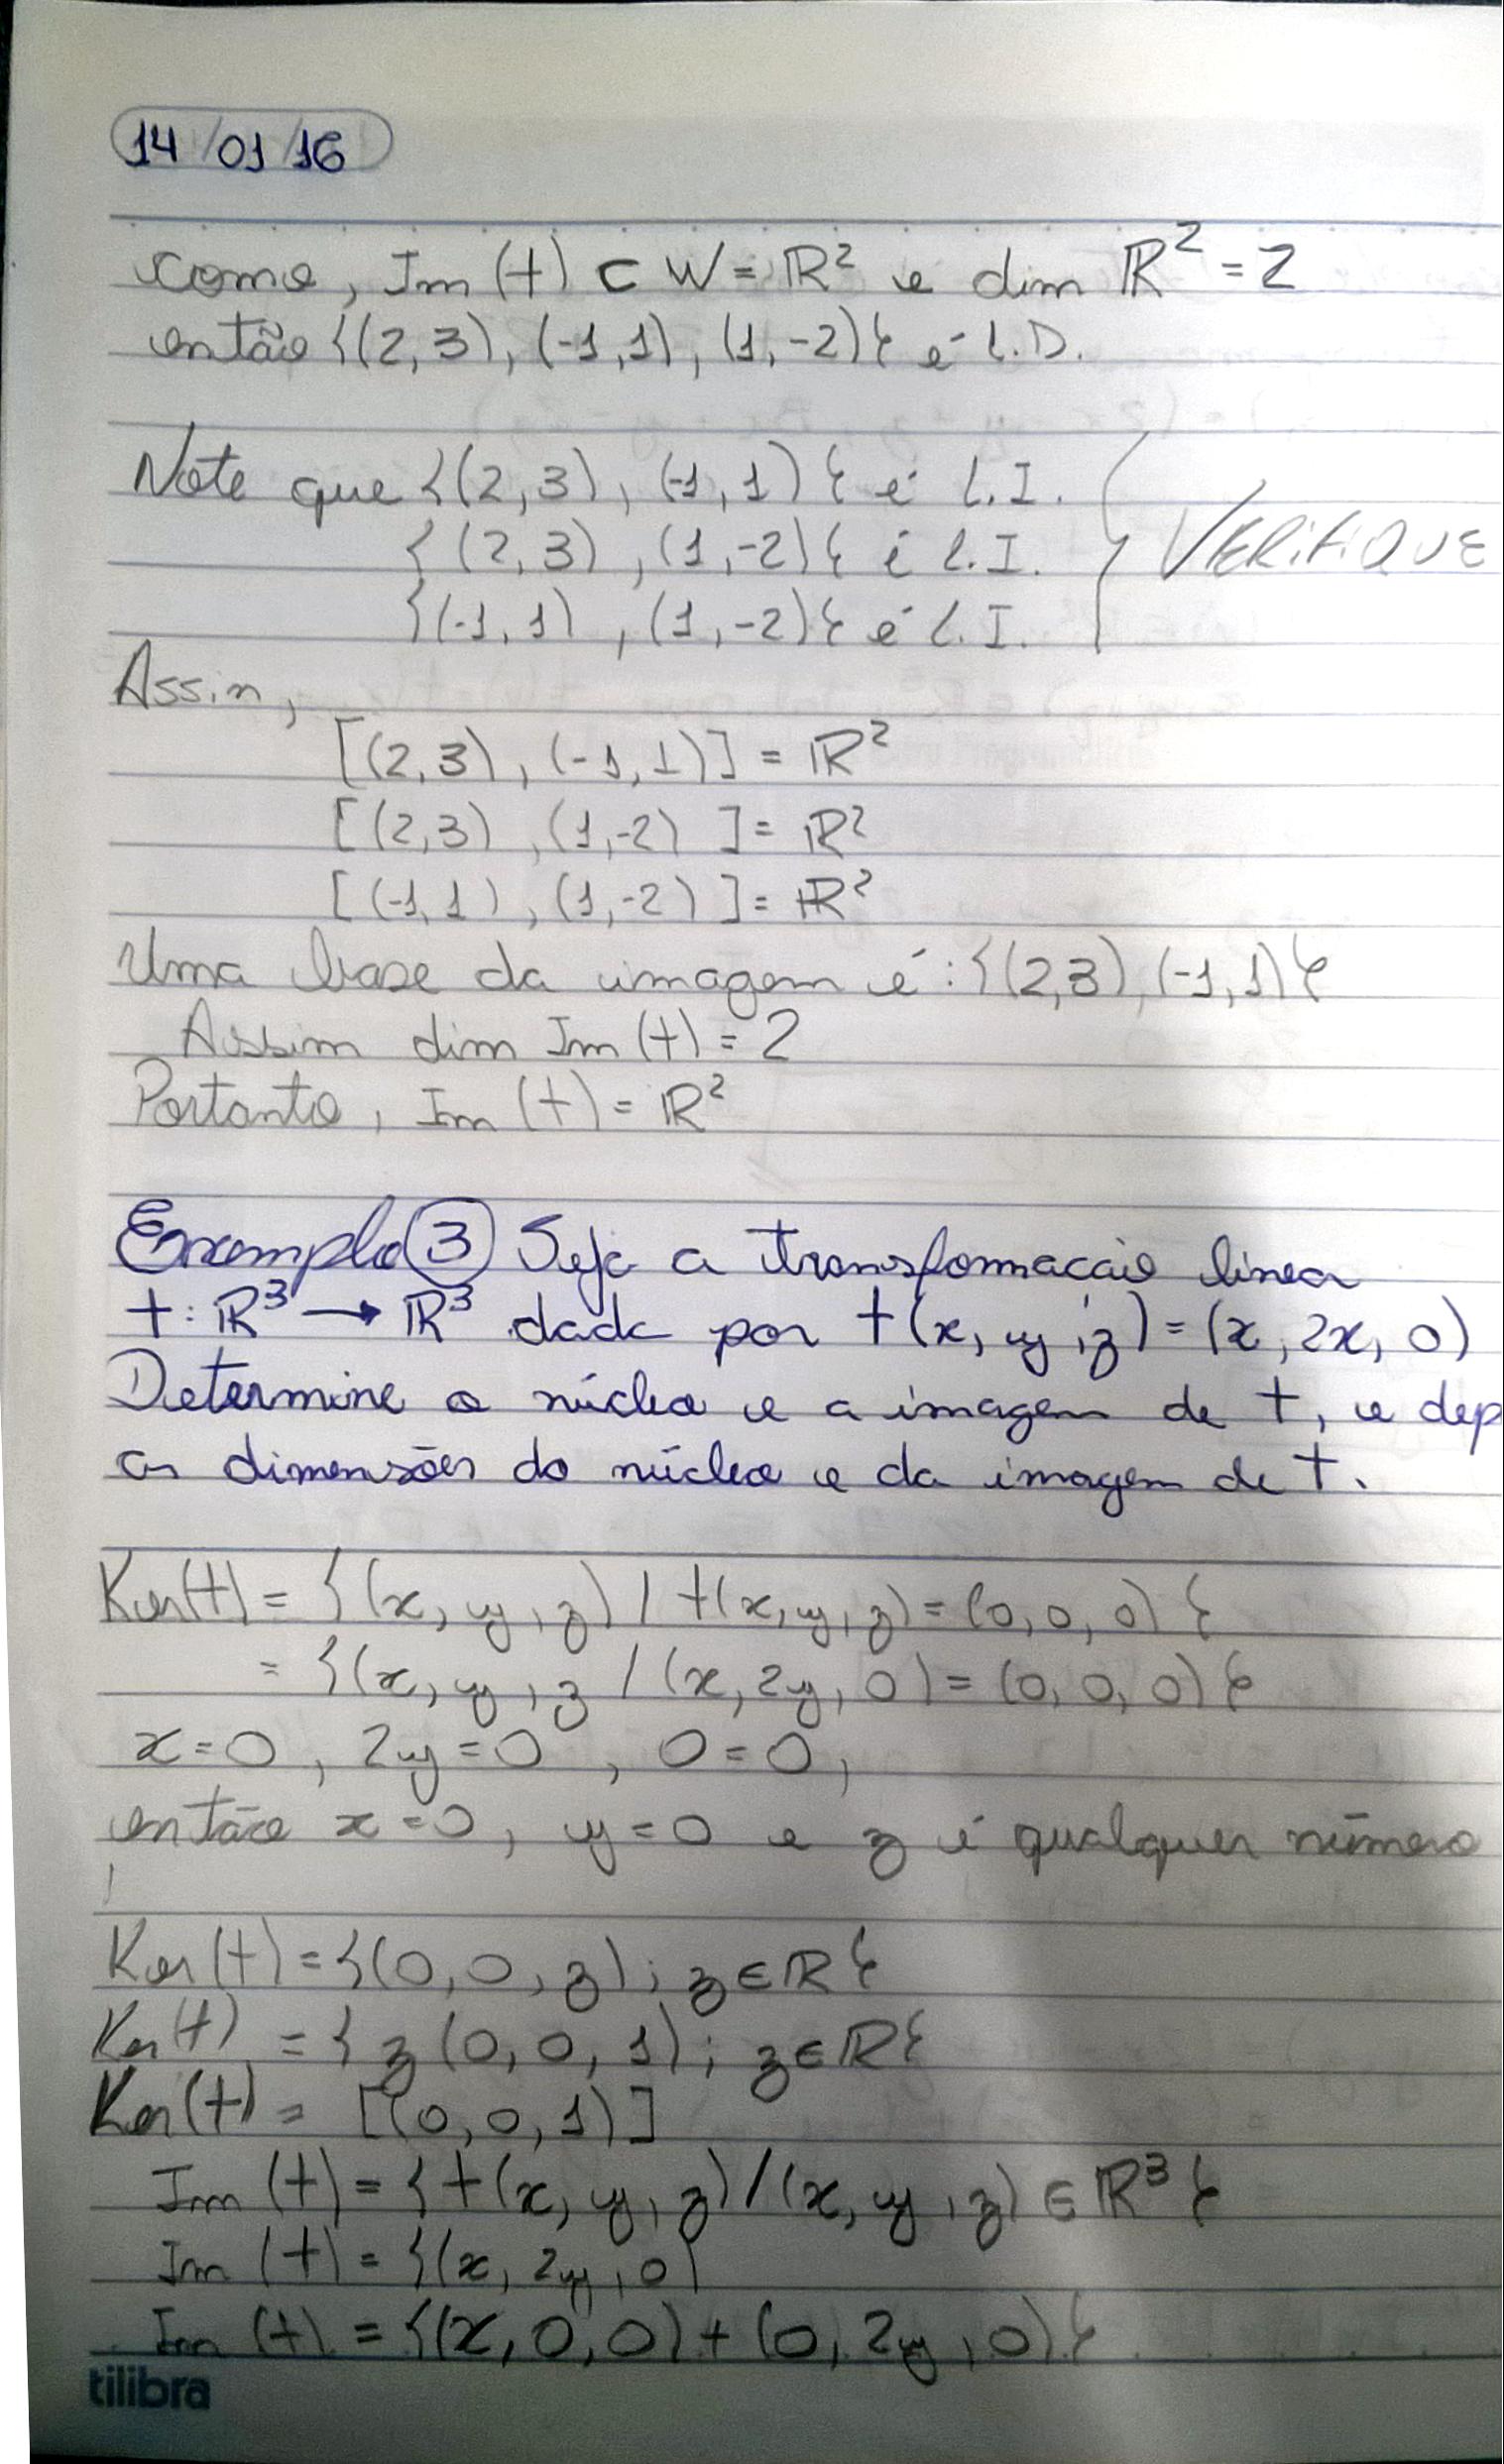 14/01/16
Como, Im (t) ⊂ W = ℝ² e dim ℝ² = 2
então {(2,3), (-1,1), (1,-2)} é L.D.
Note que {(2,3), (-1,1)} é L.I.
{(2,3), (1,-2)} é L.I.
{(-1,1), (1,-2)} é L.I.
VERIFIQUE
Assin,
[(2,3), (-1,1)] = ℝ²
[(2,3), (1,-2)] = ℝ²
[(-1,1), (1,-2)] = ℝ²
Uma base da imagem é: {(2,3), (-1,1)}
Assim dim Im (t) = 2
Portanto, Im (t) = ℝ²
Exemplo 3 Seja a transformação linea
t: ℝ³ → ℝ³ dada por t(x, y, z) = (x, 2x, 0)
Determine o núcleo e a imagem de t, e dep
as dimensões do núcleo e da imagem de t.
Ker(t) = {(x, y, z) / t(x, y, z) = (0, 0, 0)}
= {(x, y, z / (x, 2y, 0) = (0, 0, 0)}
x = 0, 2y = 0, 0 = 0,
então x = 0, y = 0 e z é qualquer número
Ker(t) = {(0, 0, z); z ∈ ℝ}
Ker(t) = {z(0, 0, 1); z ∈ ℝ}
Ker(t) = [(0, 0, 1)]
Im (t) = {t(x, y, z) / (x, y, z) ∈ ℝ³}
Im (t) = {(x, 2y, 0)
Im (t) = {(x, 0, 0) + (0, 2y, 0)}
tilibra